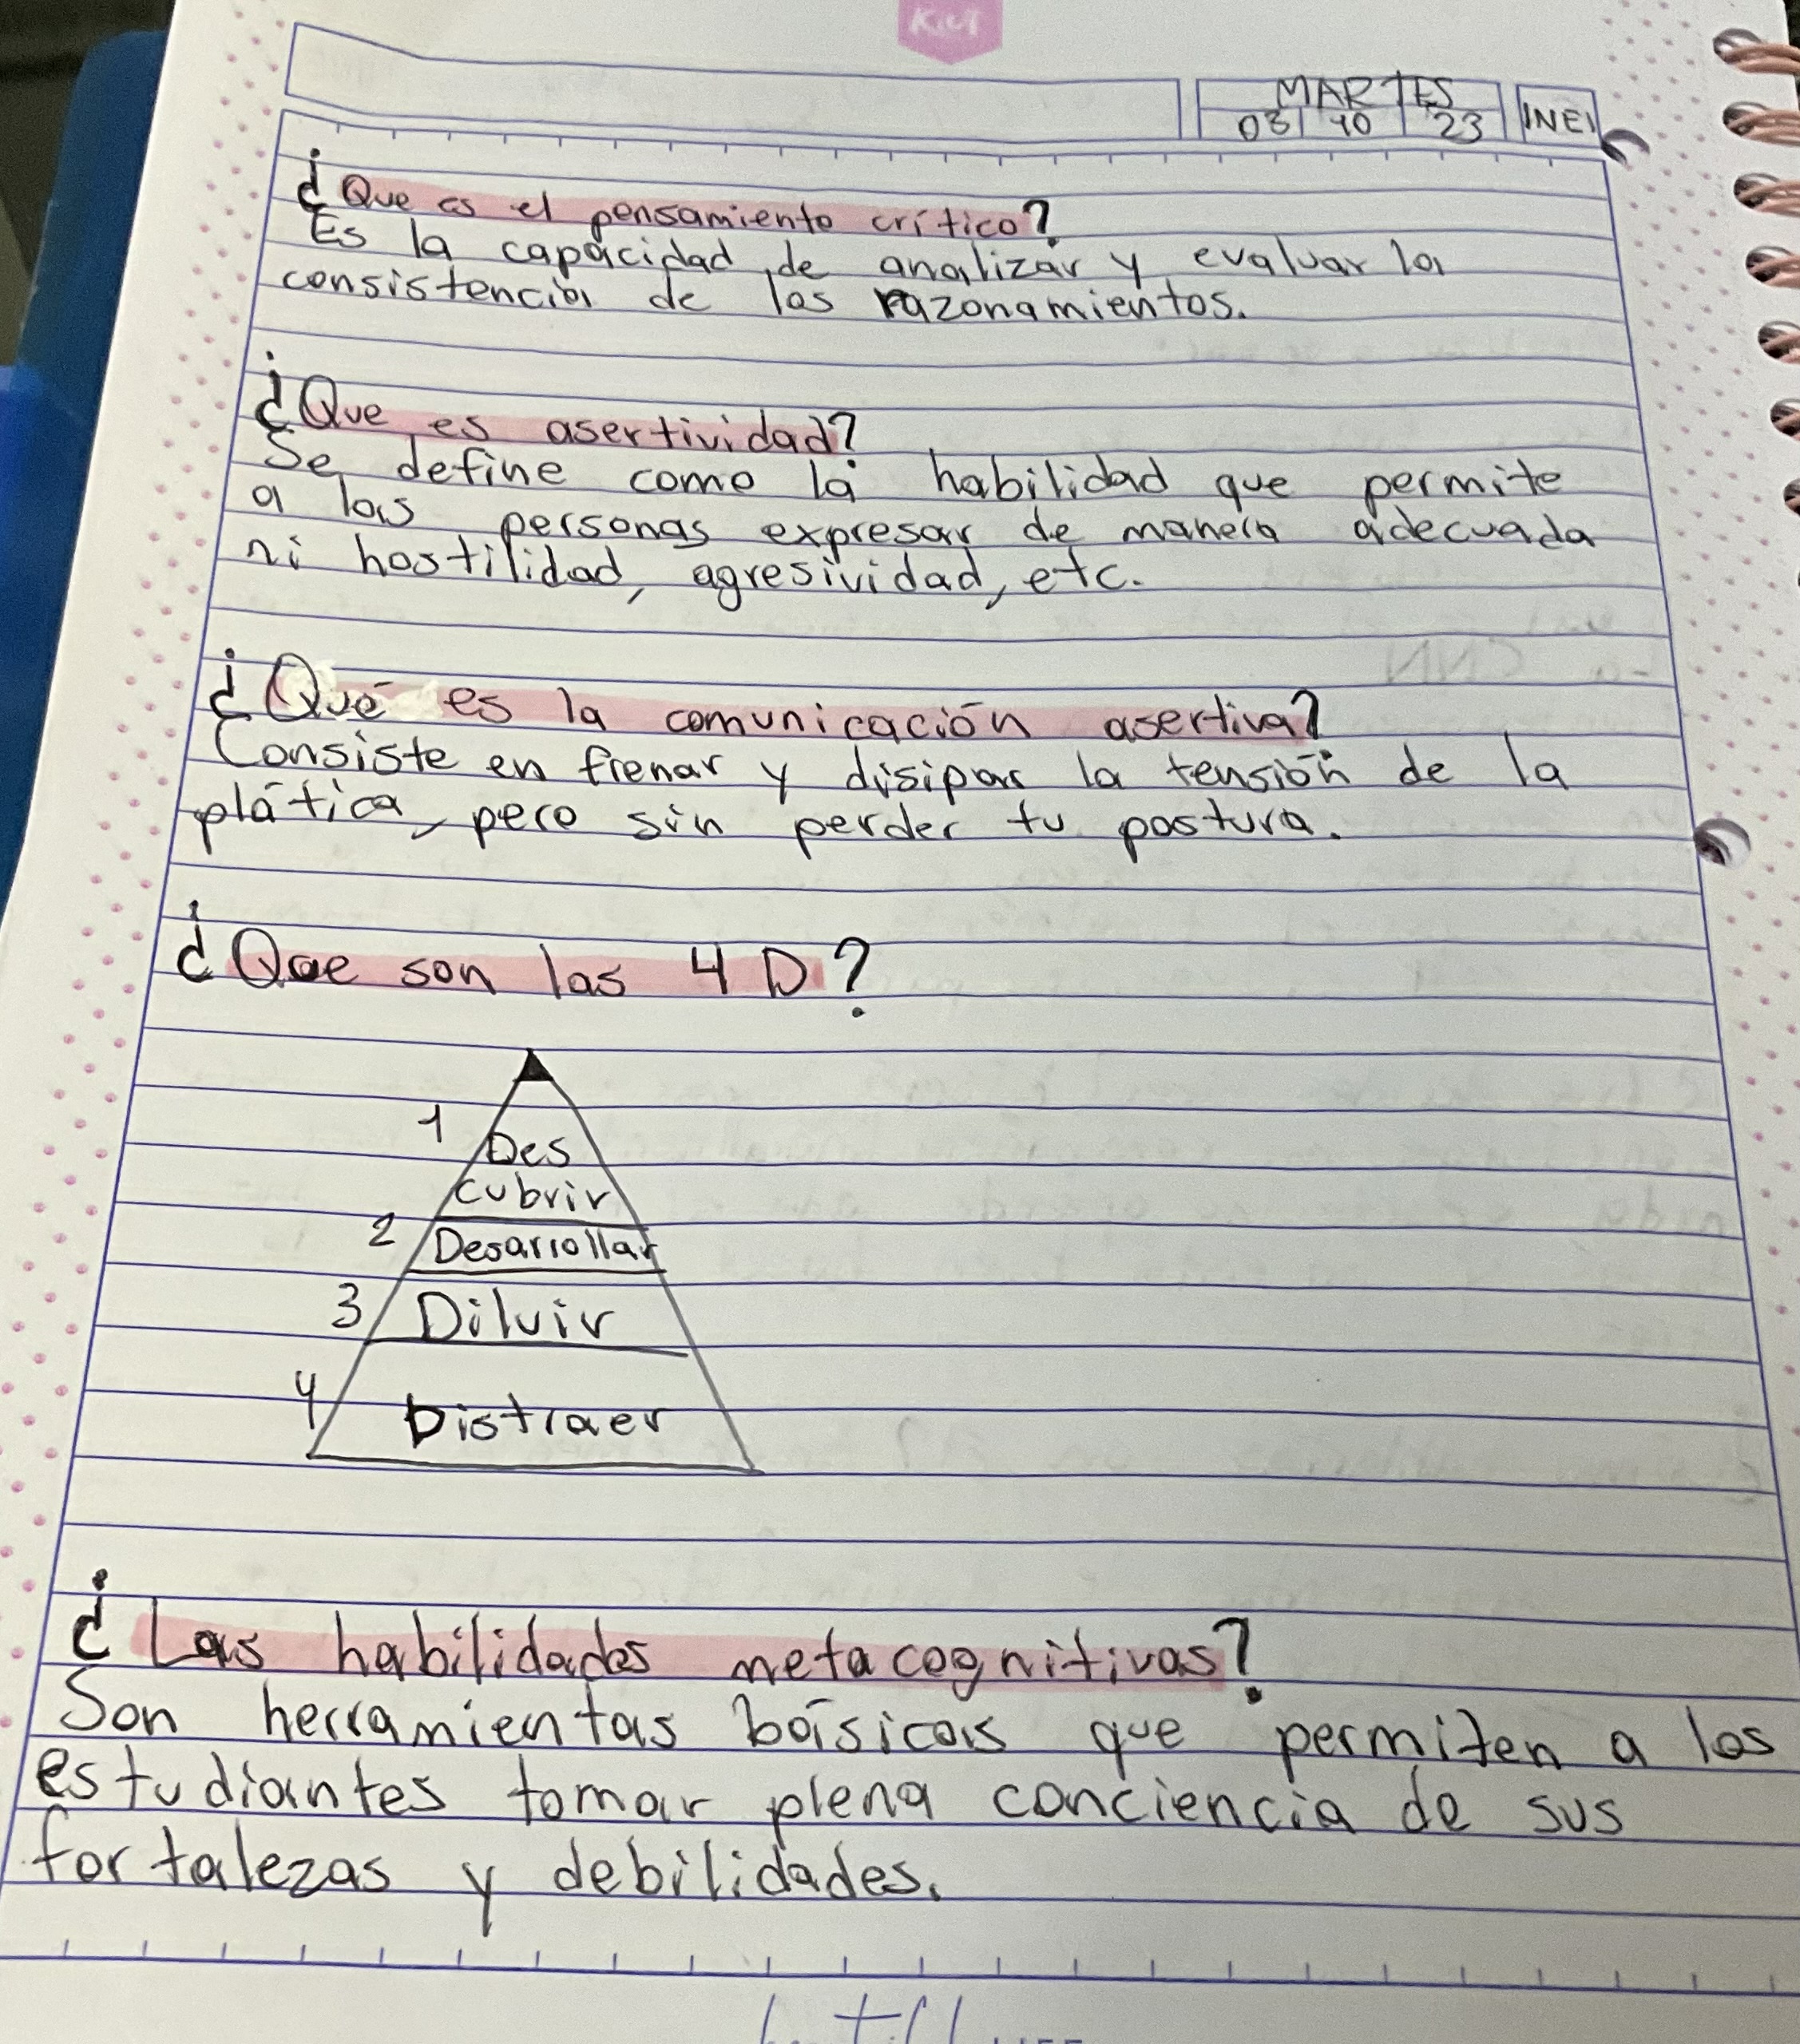 Kiut
MARTES
03 10 23 INEI
¿Que es el pensamiento crítico?
Es la capacidad de analizar y evaluar la
consistencia de los razonamientos.
¿Que es asertividad?
Se define como la habilidad que permite
a las personas expresar de manera adecuada
ni hostilidad, agresividad, etc.
¿Qué es la comunicación asertiva?
Consiste en frenar y disipar la tensión de la
plática, pero sin perder tu postura.
¿Que son las 4 D?
1 Des
cubrir
2 Desarrollar
3 Diluir
4 Distraer
¿Las habilidades metacognitivas?
Son herramientas básicas que permiten a los
estudiantes tomar plena conciencia de sus
fortalezas y debilidades.